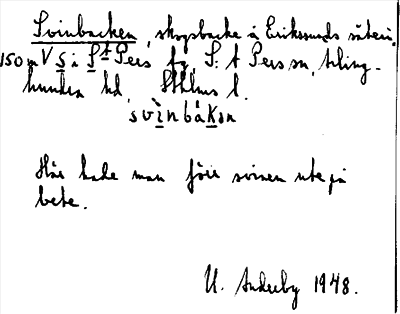 Svinbacken, skogsbacke å Erikssunds säteri,
150 m V S i S:t Pers fg, S:t Pers sn, Ärling-
hundra hd, Sthlms l.
svinbakan
Här hade man förr svinen ute på
bete.
U. Anderby 1948.